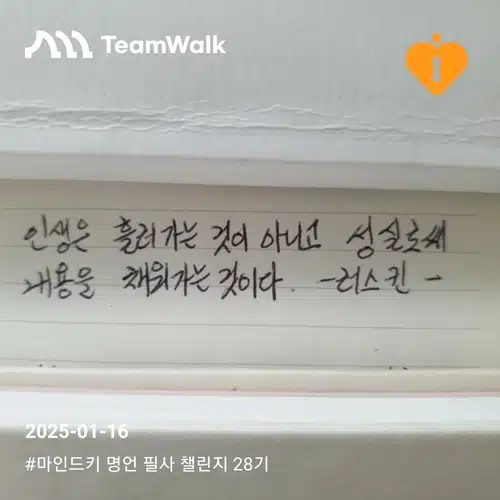 TeamWalk
인생은 흘러가는 것이 아니고 성실로써
내용을 채워가는 것이다. -러스킨-
2025-01-16
#마인드키 명언 필사 챌린지 28기